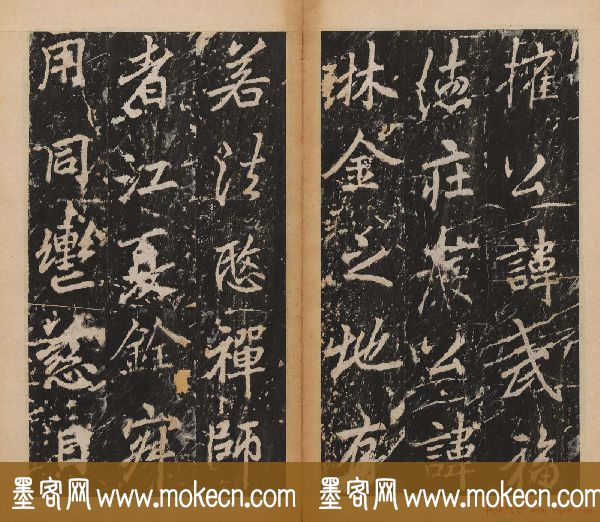 擁公諱武福
德莊嚴公諱
林金之地有
若法愍禪師
者江夏銓宰
用同轡慈
墨客网 www.mokecn.com
墨客网 www.mokecn.com